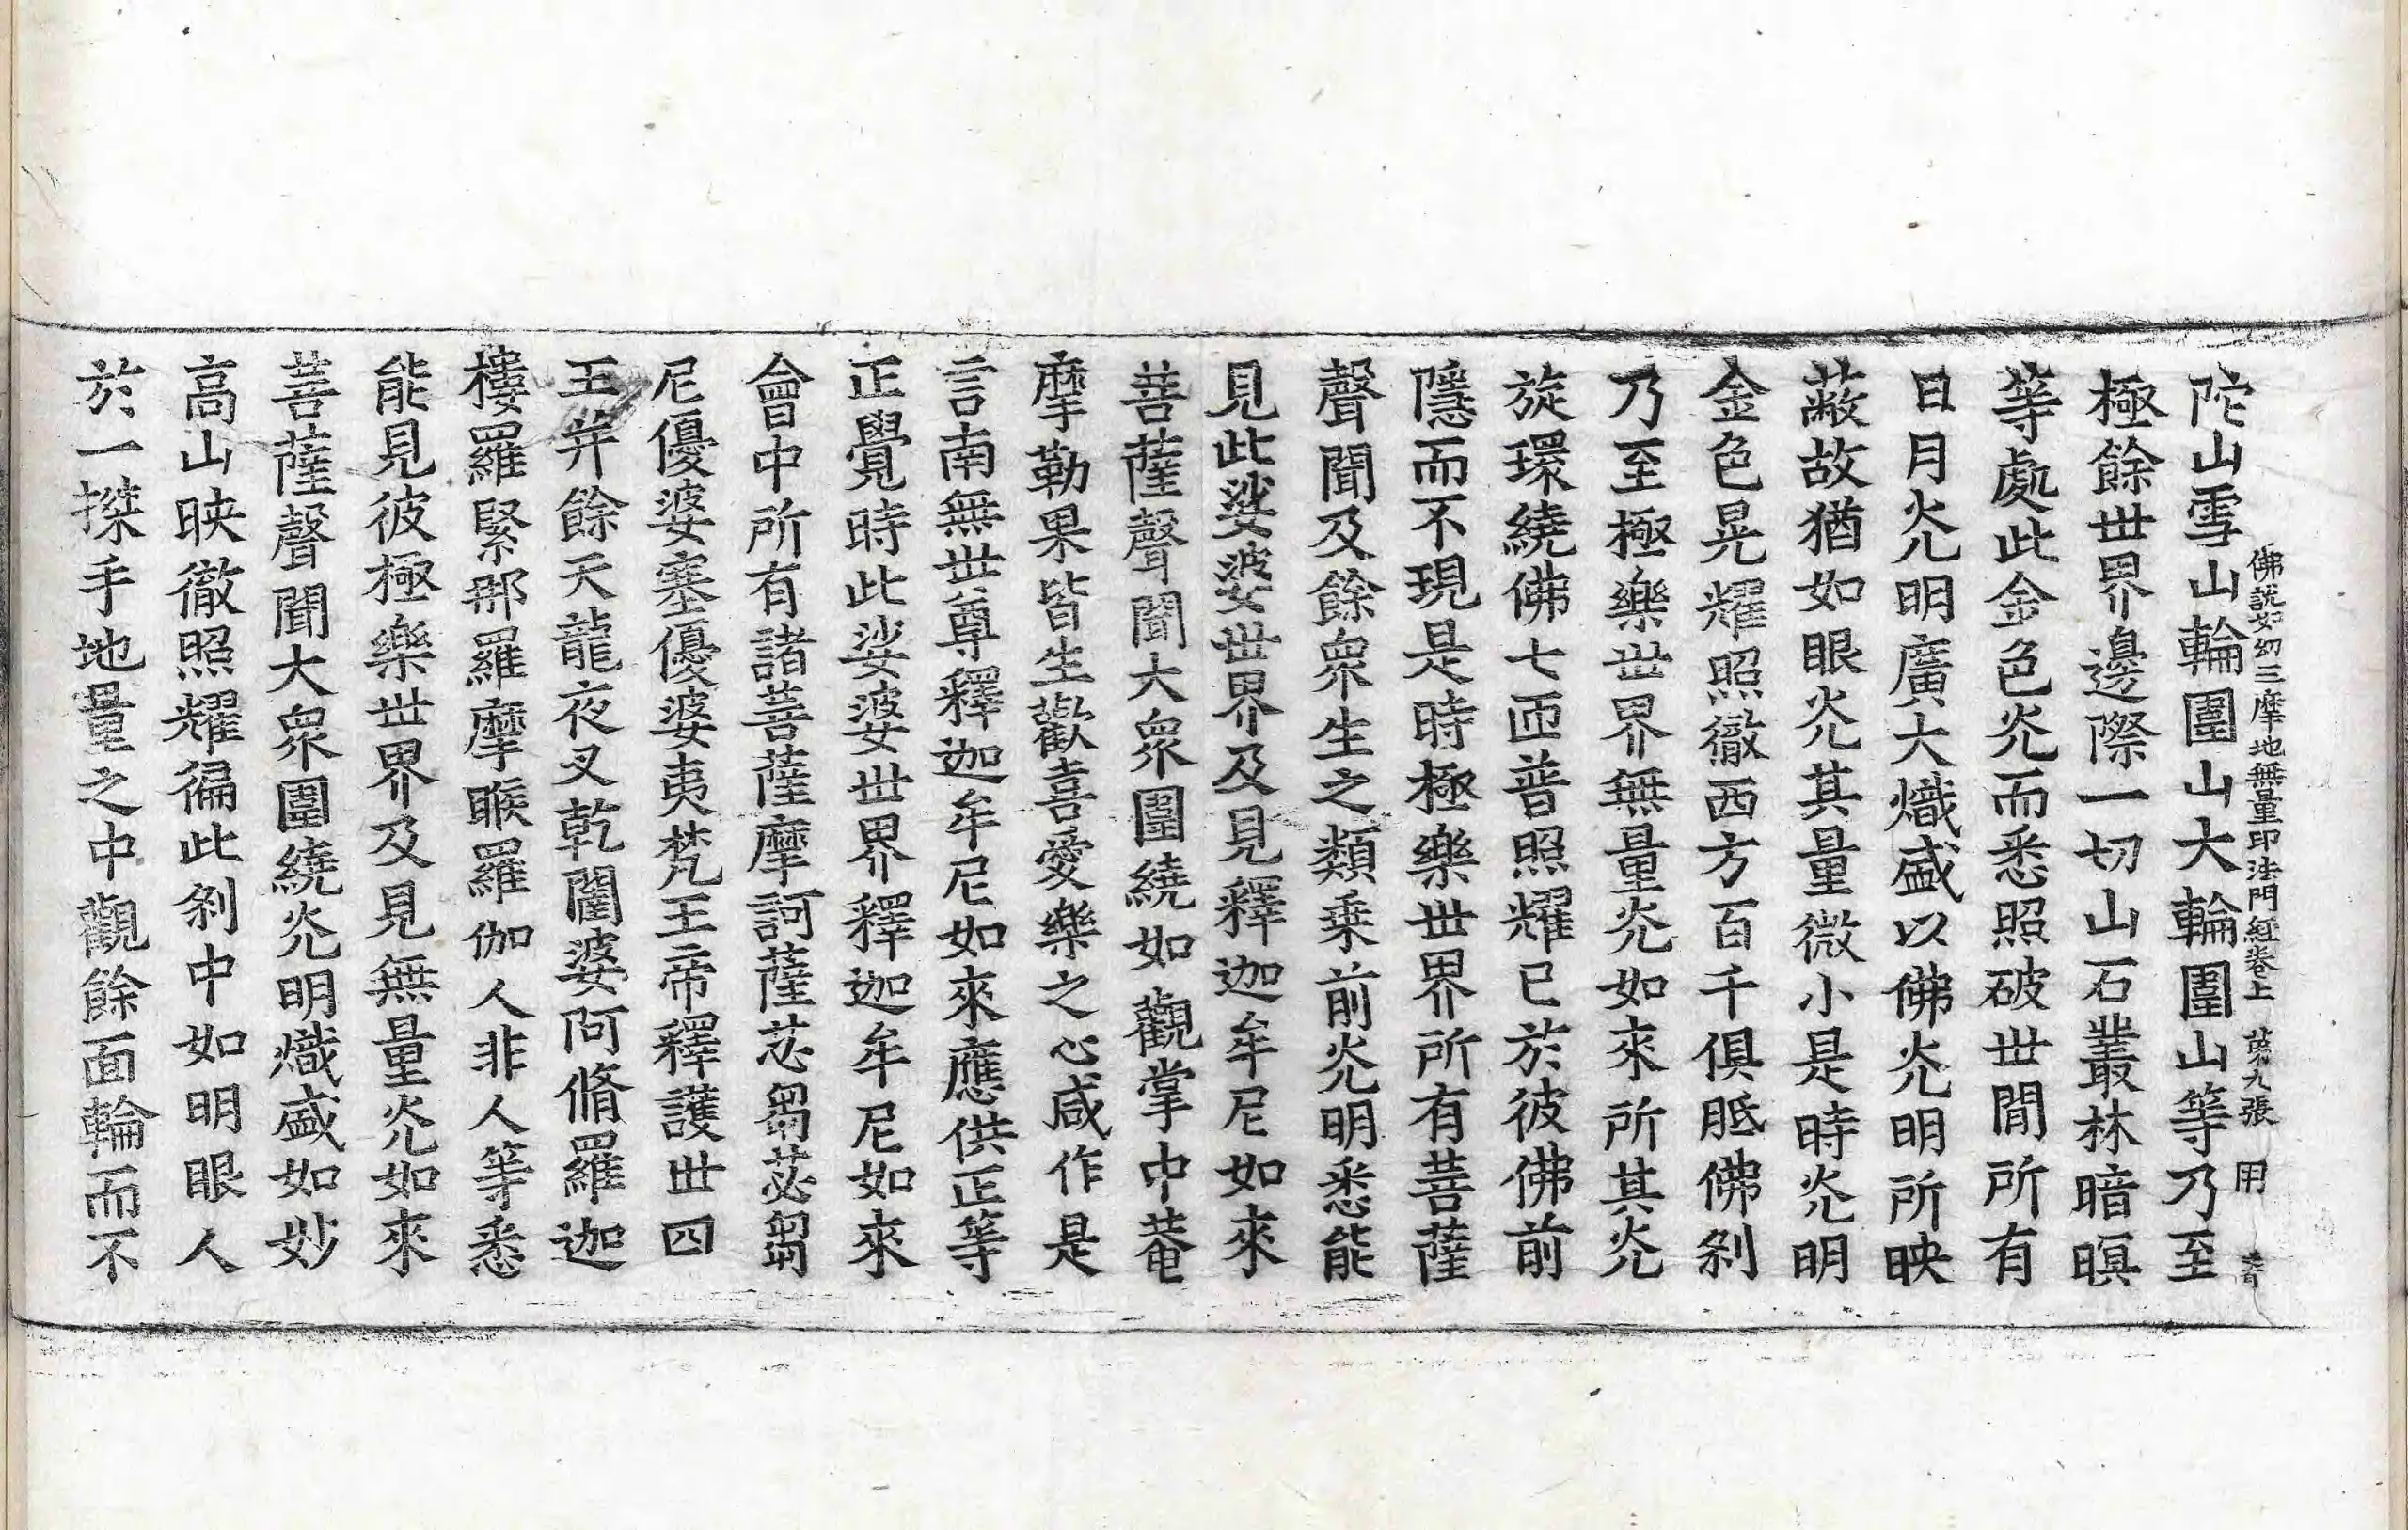 佛說如幻三摩地無量印法門經卷上 第九張 用
陀山雪山輪圍山大輪圍山等乃至
極餘世界邊際一切山石叢林暗暝
等處此金色光而悉照破世間所有
日月光明廣大熾盛以佛光明所映
蔽故猶如眼光其量微小是時光明
金色晃耀照徹西方百千俱胝佛剎
乃至極樂世界無量光如來所其光
旋環繞佛七匝普照耀已於彼佛前
隱而不現是時極樂世界所有菩薩
聲聞及餘衆生之類乗前光明悉能
見此娑婆世界及見釋迦牟尼如來
菩薩聲聞大衆圍繞如觀掌中菴
摩勒果皆生歡喜愛樂之心咸作是
言南無世尊釋迦牟尼如來應供正等
正覺時此娑婆世界釋迦牟尼如來
會中所有諸菩薩摩訶薩苾芻苾芻
尼優婆塞優婆夷梵王帝釋護世四
王并餘天龍夜叉乾闥婆阿脩羅迦
樓羅緊那羅摩睺羅伽人非人等悉
能見彼極樂世界及見無量光如來
菩薩聲聞大衆圍繞光明熾盛如妙
高山映徹照耀徧此剎中如明眼人
於一搩手地量之中觀餘面輪而不